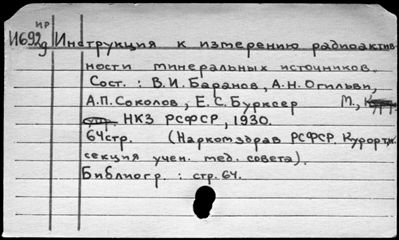 ИР
И692д Инструкция к измерению радиоактив-
ности минеральных источников.
Сост.: В.И. Баранов, А.Н. Огильви,
А.П. Соколов, Е.С. Бурксер М.,
НКЗ РСФСР, 1930.
64стр. (Наркомздрав РСФСР. Курортн.
секция учен. мед. совета).
Библиогр.: стр. 64.